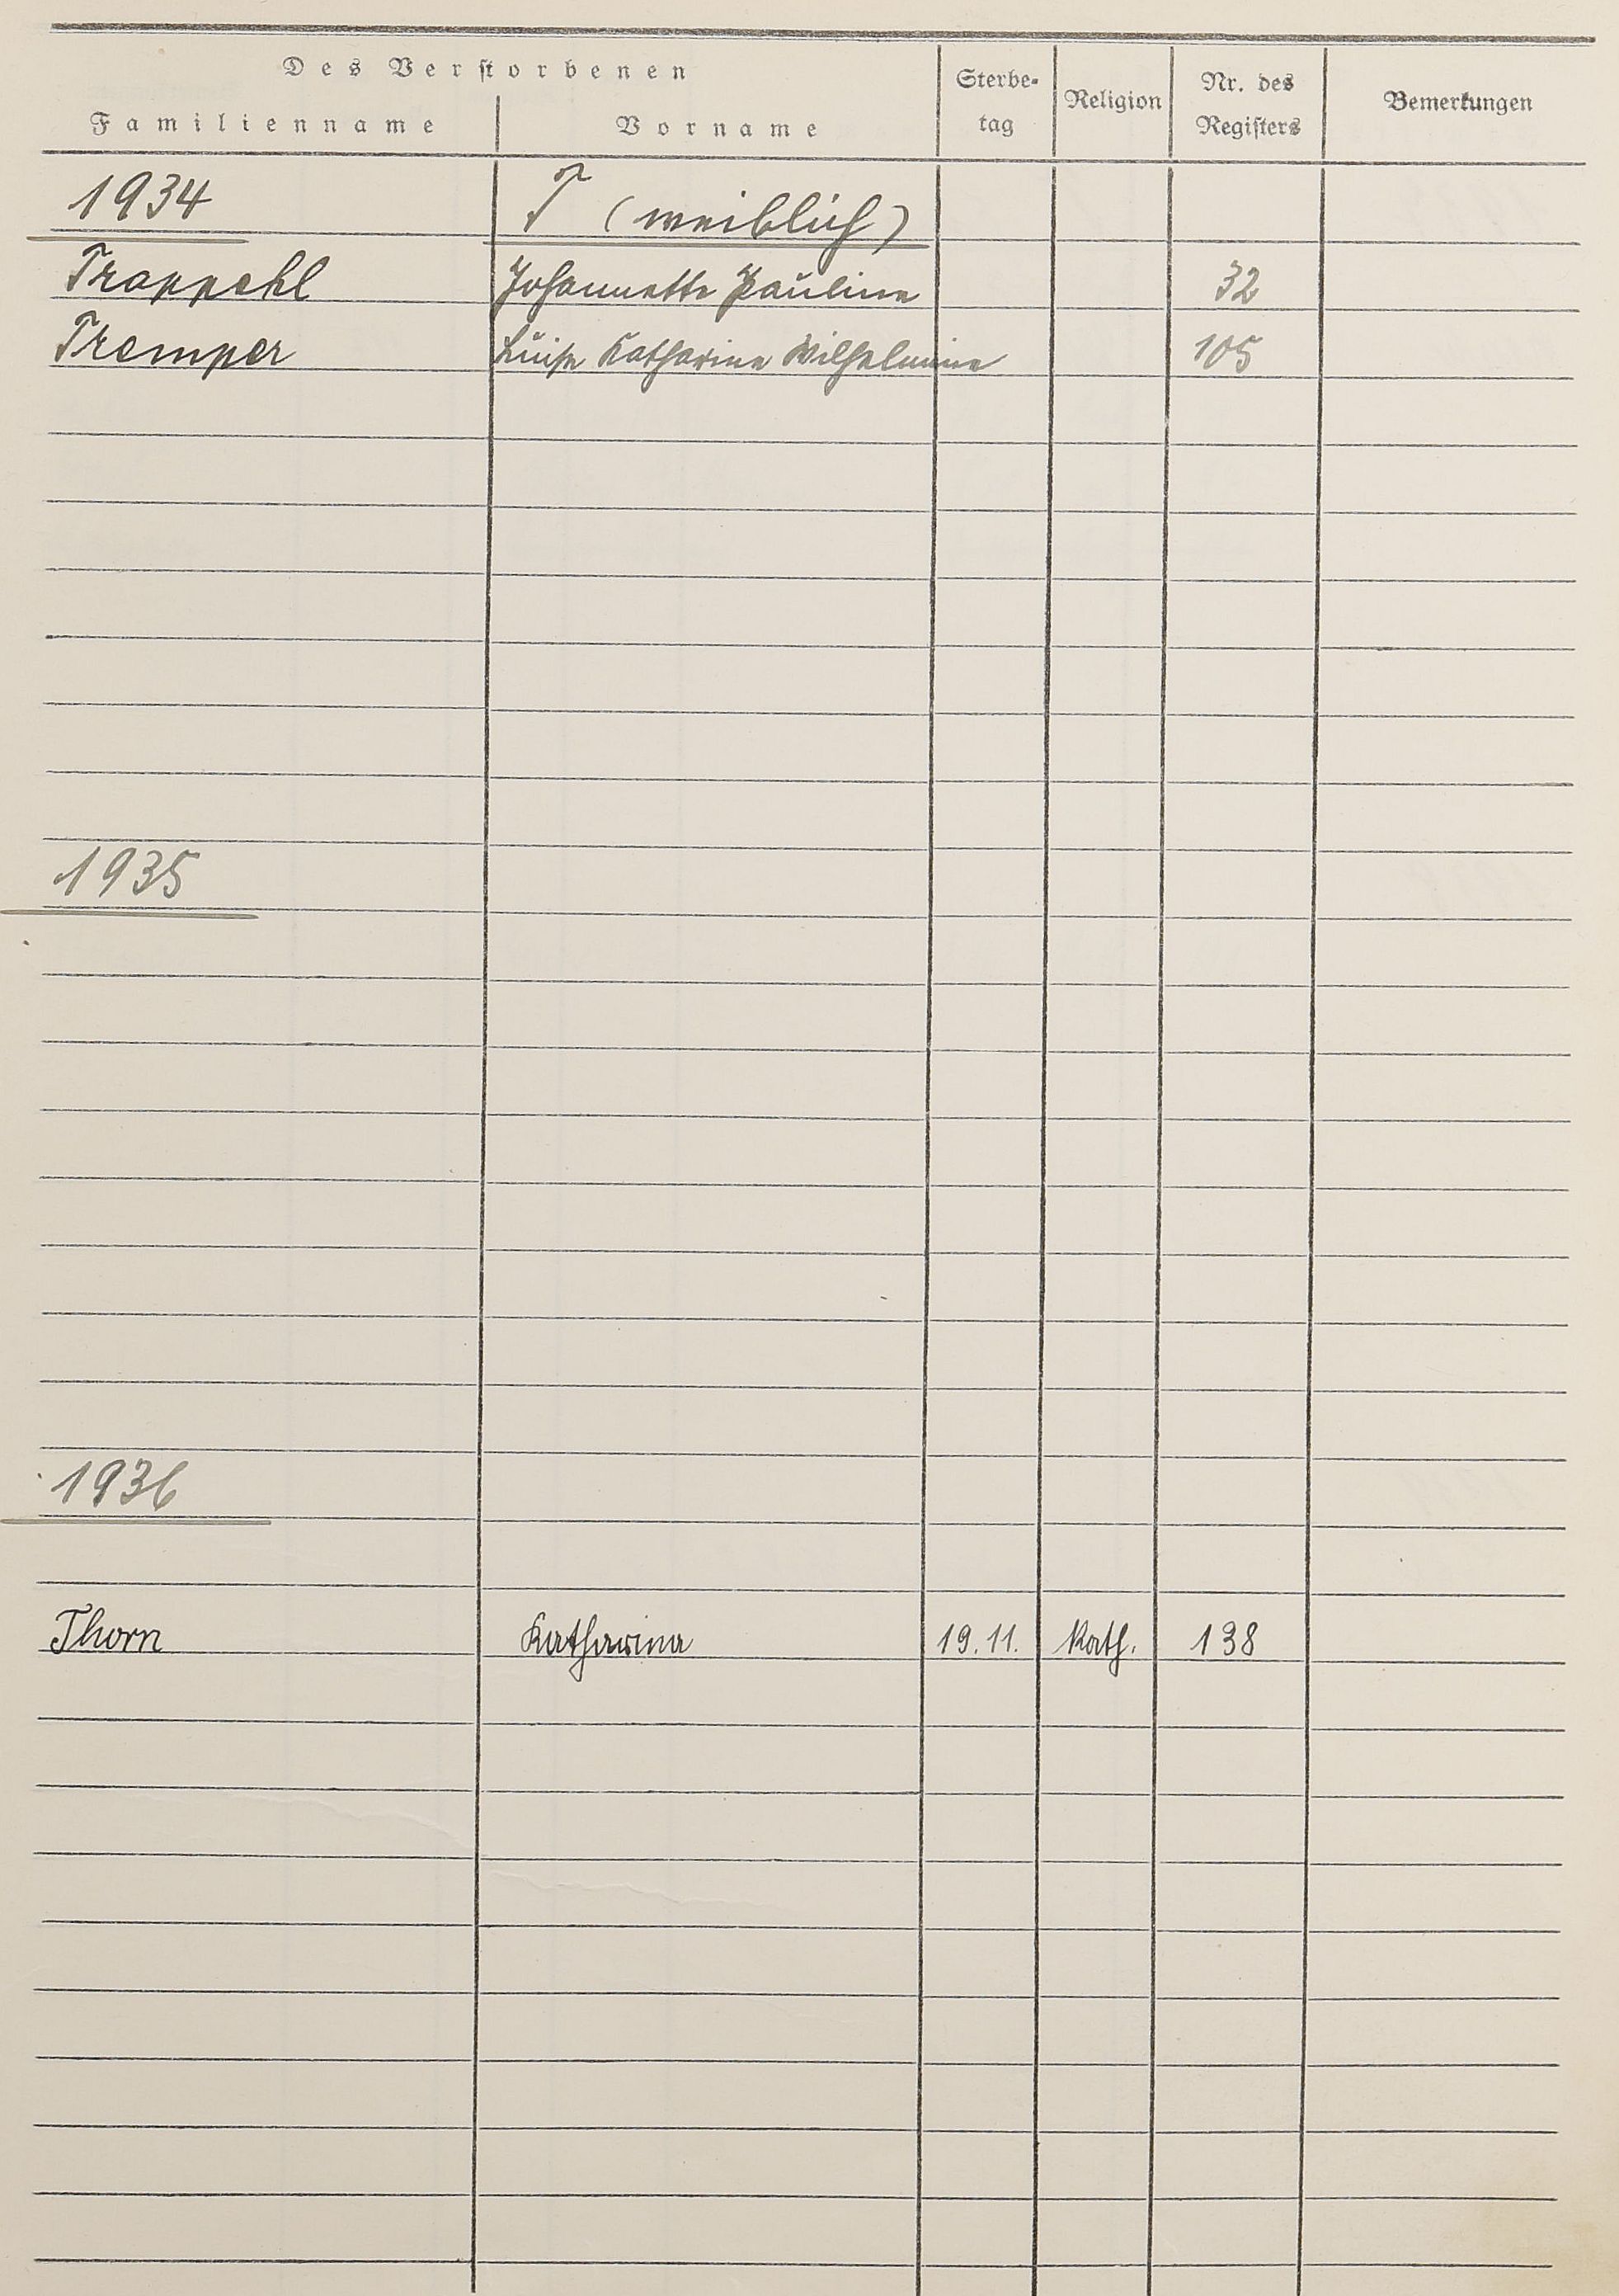 Des Verstorbenen
Familienname Vorname Sterbe-tag Religion Nr. des Registers Bemerkungen
1934 T (weiblich)
Trappehl Johannette Pauline 32
Tremper Luise Katharine Wilhelmine 105
1935
1936
Thorn Katharina 19.11. Kath. 138